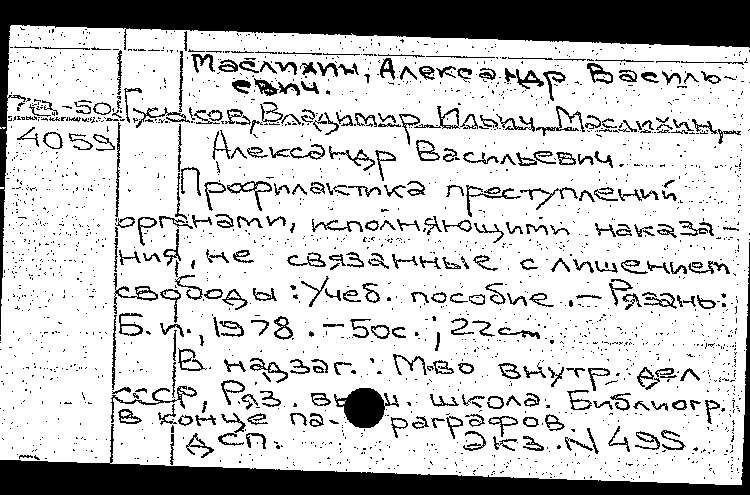 Маслихин, Александр Василь-
евич.
7д-50 Гуськов, Владимир Ильич, Маслихин,
4059 Александр Васильевич.
Профилактика преступлений
органами, исполняющими наказа-
ния, не связанные с лишением
свободы : Учеб. пособие. - Рязань:
Б.и., 1978. - 50с. ; 22 см.
В надзаг. : М-во внутр. дел
СССР, Ряз. высш. школа. Библиогр.
в конце па- раграфов.
ДСП. Экз. N 495.